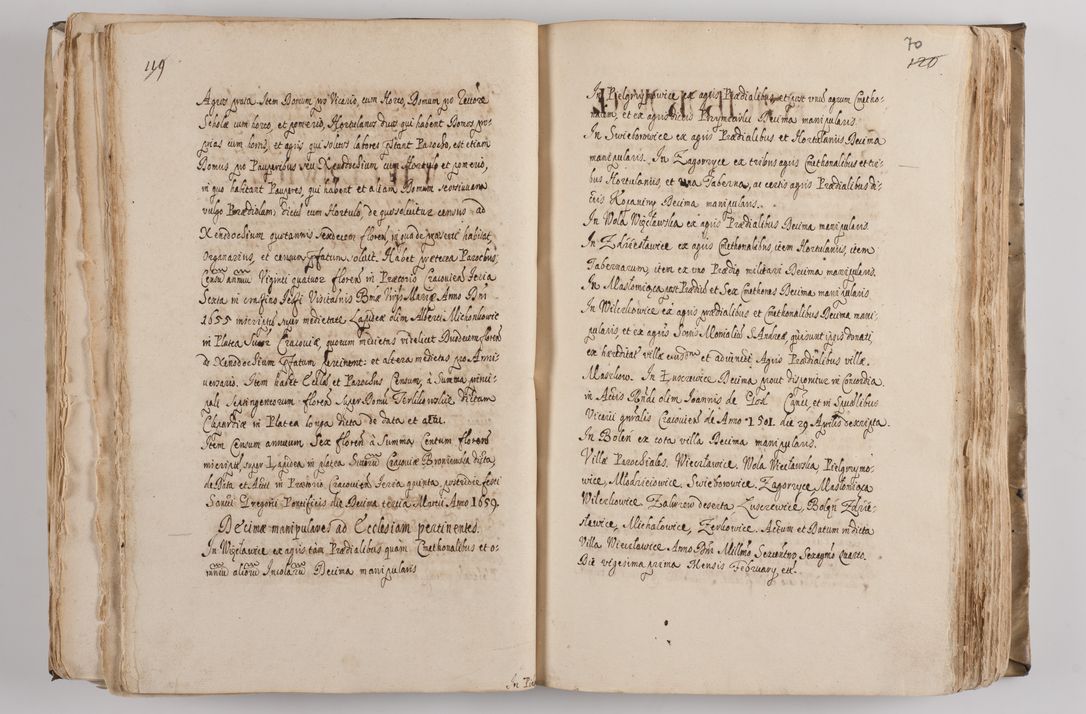 119
Agros prata. Item Domum pro Vicario, cum Horto, Domum pro Rectore
Scholæ cum horto, et pomerio, Hortulanos duos qui habent Domos pro-
prias cum hortis, et agris qui solent labores Parocho, est etiam
Domus pro Pauperibus seu Xenodochium cum Hortulo et pomerio,
in quo habitant Pauperes, qui habent et aliam Domum
vulgo dictus cum Hortulo, de quo solvitur census ad
Xenodochium quotannis sexdecem floren, in quo de præsenti habitat
Organarius, et censum solvit. Habet præterea Parochus
Censum annuum Viginti quatuor floren in Prætorio Cracovien Feria
Sexta in crastino Festi Visitationis Bmæ Virgis Mariæ Anno Dni
1655 inscriptus super medietate Lapideæ olim Alberti Michonkowic
in Platea Cracoviæ, quorum medietas videlicet Duodecem floren
ad Xenodochium pertinent: et altera medietas pro Anni-
versario. Item habet Ecclia et Parochus Censum, à Summa princi-
pali Septingentorum floren super Domu dictam
in Platea longa dicta de data et actu.
Item Censum annuum Sex floren à Summa Centum floren
inscript super Lapidea in platea Cracoviæ Broniowska dicta,
de Data et Actu in Prætorio Cracovien Feria quinta, postridie festi
Sancti Gregorii Pontificis die Decima tertia Martii Anno 1659.
Decimæ manipulares ad Ecclesiam pertinentes.
In Więcławice ex agris tàm Prædialibus quàm Cmethonalibus et o-
mniu aliorũ Incolarũ Decima manipularis
In Piel
70
120
In Pielgrzymowice ex agris Prædialibus, et post unũ agrum Cmetho-
nalem, et ex agris dictis Decima manipularis.
In Swieborowice ex agris Prædialibus et Hortulaniis Decima
manipularis. In Zagorzyce ex tribus agris Cmethonalibus et tri-
bus Hortulaniis, et una Taberna, ac certis agris Prædialibus di-
ctis Decima manipularis.
In Wola Więcławska ex agris Prædialibus Decima manipularis
In Zdziesławice ex agris Cmethonalibus, item Hortulaniis, item
Tabernarum, item ex uno Prædio militari Decima manipularis.
In Masłomiąca post Prædiũ et Sex Cmethones Decima manipularis
In Wilczkowice ex agris prædialibus et Cmethonalibus Decima mani-
pularis, et ex agris Monialiũ S. Andreæ, qui sunt ipsis donati,
ex hæreditat villæ eiusdem et advenienti Agris Prædialibus villæ
Maszkow. In Łuczewice Decima prout disponitur in Concordia
in Actis Rndi olim Joannis de Canci, et in Spualibus
Vicarii gnralis Cracovien de Anno 1501. die 29 Aprilis descripta.
In Bolen ex tota villa Decima manipularis.
Villæ Parochiales. Więcławice. Wola Więcławska Pielgrzymo-
wice, Młodziejowice, Swieborowice, Zagorzyce, Masłomiąca
Wilczkowice, Zaborow deserta Łuszczewice, Boleń Zdzie-
sławice, Michalowice, Zerkowice, Actum et Datum in dicta
Villa Wieczławice Anno Dni Millmo Sexcentmo Sexagmo Quarto.
Die vigesima prima Mensis February, etc.